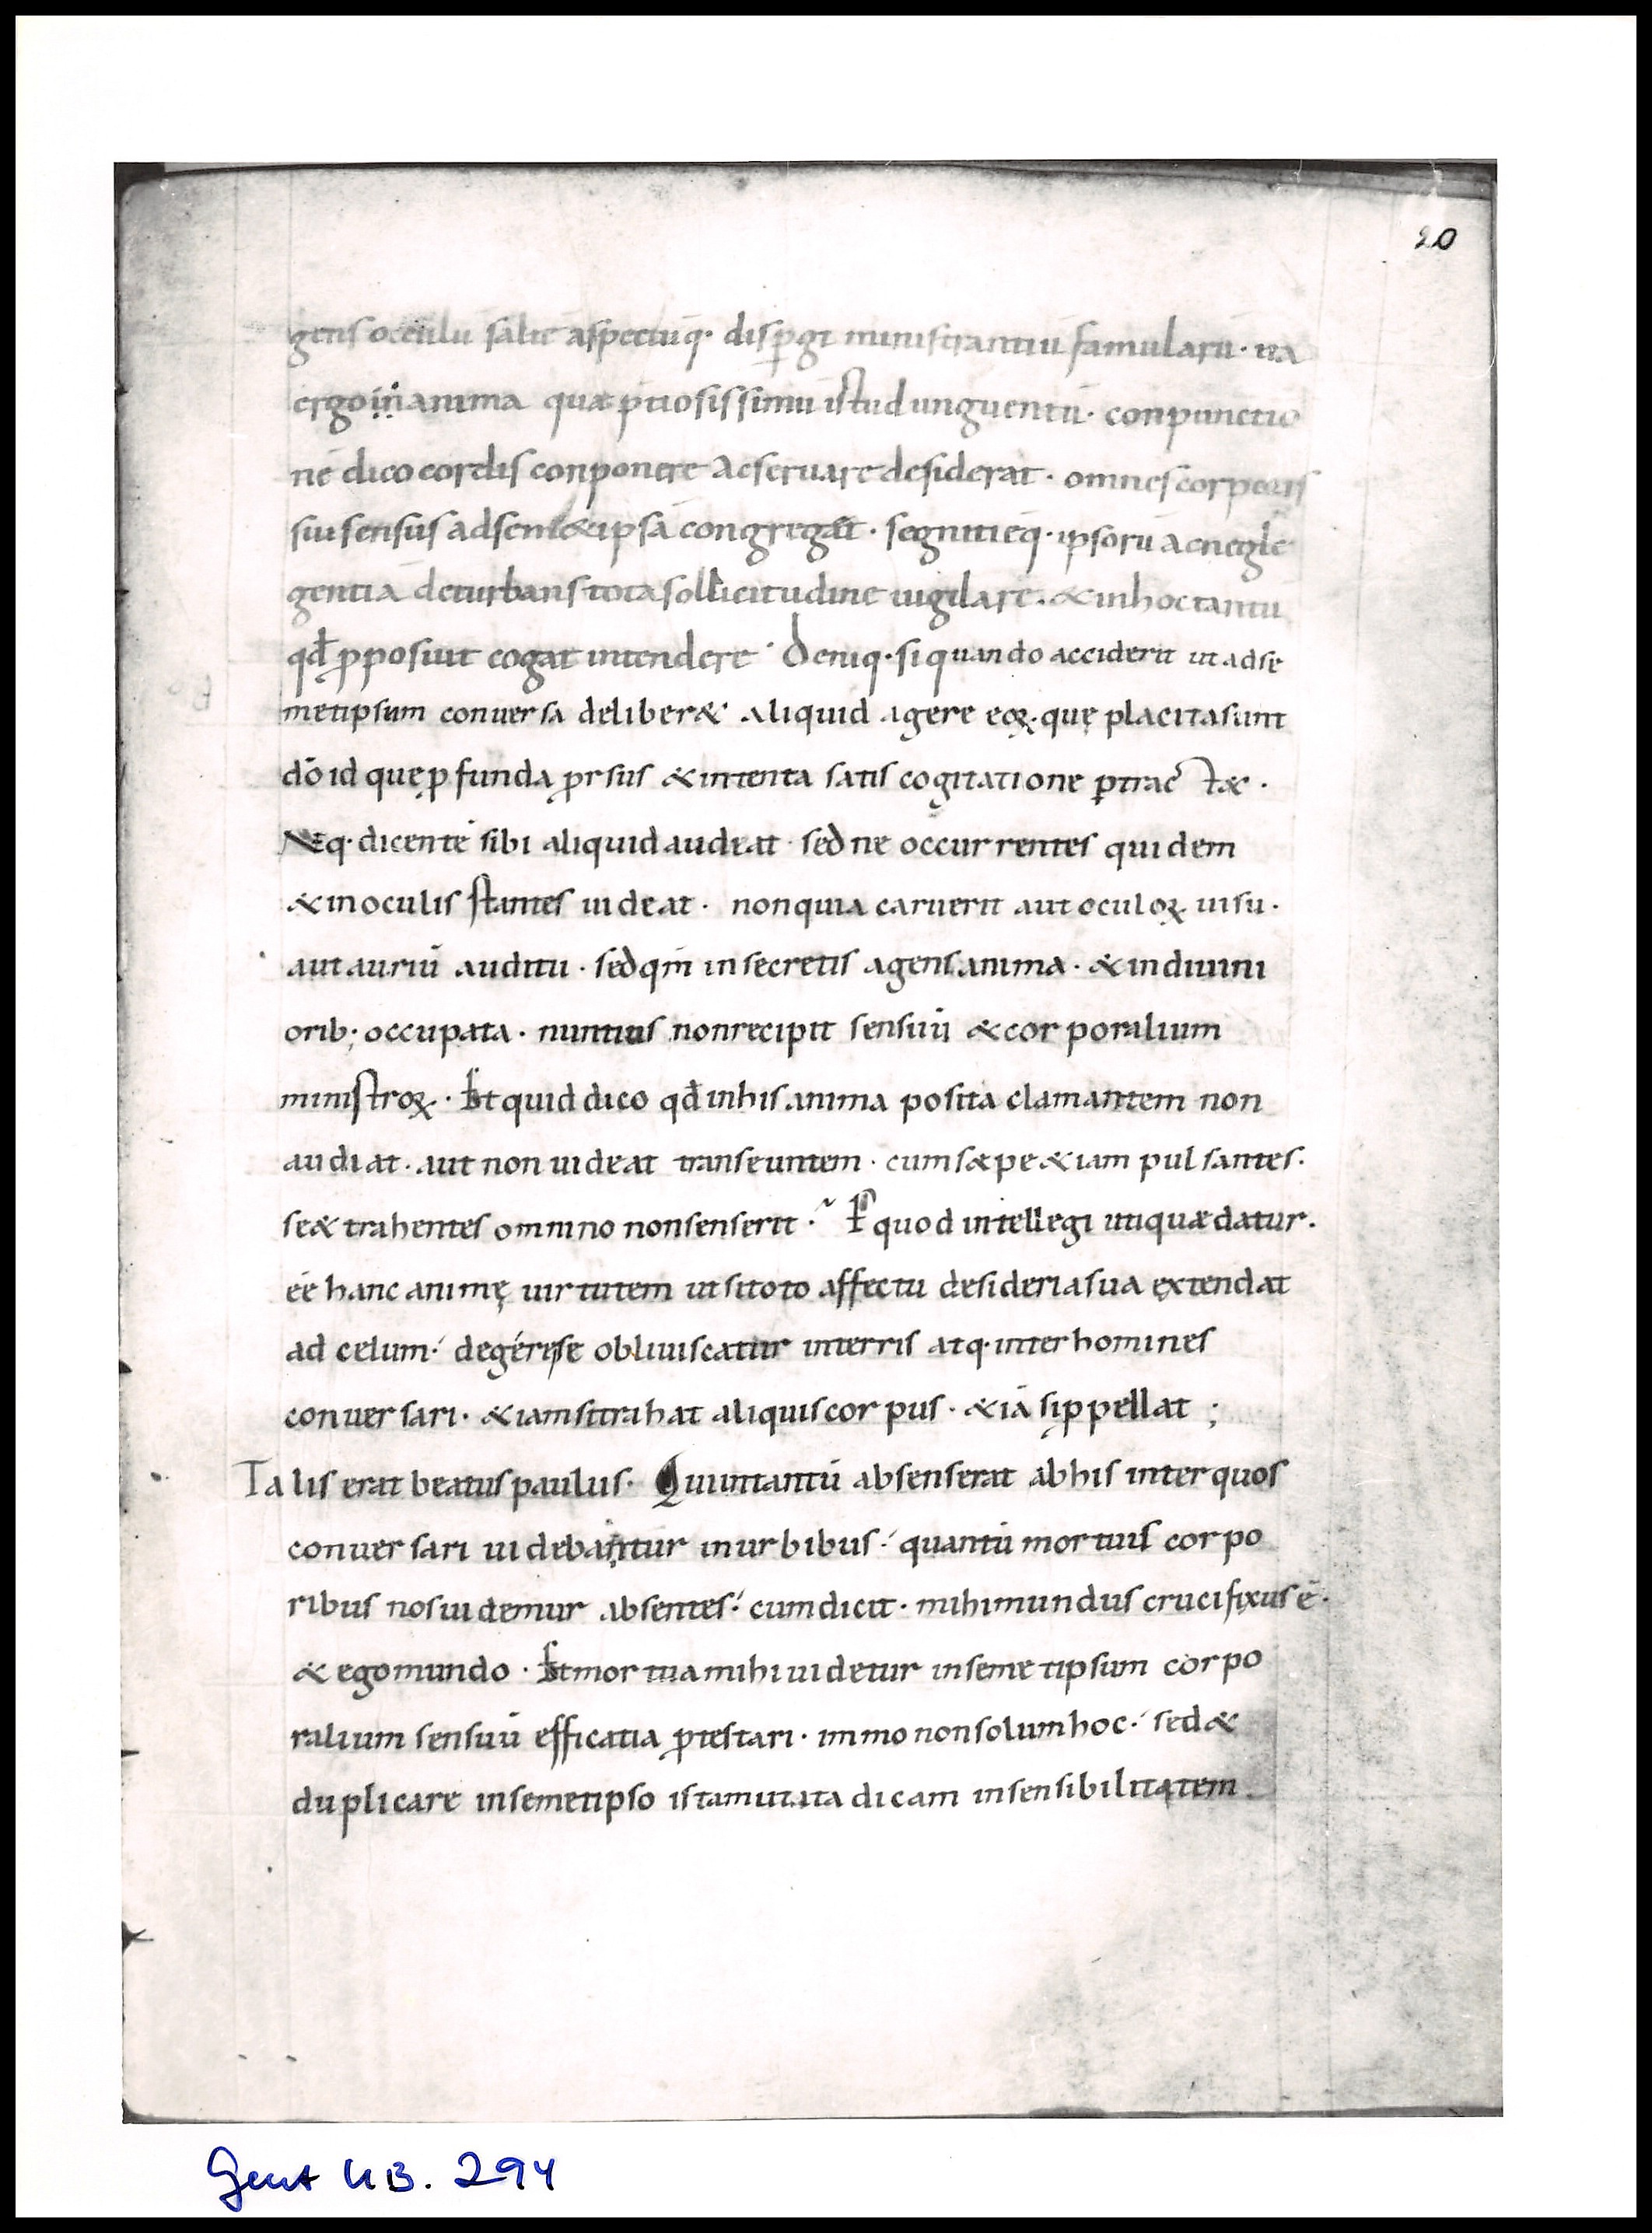 20
gens occulū saltē aspectūq· disꝑgi ministrantiū famularū· ita
ergo in anima quæ ptiosissimū istud unguentū· conpunctio
nē dico cordis conponere ac seruare desiderat· omnes corporis
sui sensus ad sem&ipsā congregat· segnitiēq· ipsorū ac negle
gentiā deturbans tota sollicitudine uigilare· & in hoc tantū
qđ ꝓposuit cogat intendere· Deniq· si quando acciderit ut ad se
metipsum conuersa deliber& aliquid agere eoꝝ· quę placita sunt
dō id que ꝓfunda ꝓrsus & intenta satis cogitatione ꝑtract&·
Neq· dicentē sibi aliquid audeat· sed ne occurrentes quidem
& in oculis stantes uideat· non quia caruerit aut oculoꝝ uisu·
aut auriū auditu· sed qm̄ in secretis agens anima· & in diuini
orib; occupata· nuntius non recipit sensuū & corporalium
ministroꝝ· Et quid dico qđ in his anima posita clamantem non
audiat· aut non uideat transeuntem· cum sæpe &iam pulsantes·
se & trahentes omnino non senserit· Ex quod intellegi utique datur·
eē hanc animę uirtutem ut si toto affectu desideria sua extendat
ad celum· degere se obliuiscatur in terris atq· inter homines
conuersari· &iam si trahat aliquis corpus· &iā si ꝓpellat;
Talis erat beatus paulus· Qui intantū absens erat ab his inter quos
conuersari uidebantur in urbibus· quantū mortuis corpo
ribus nos uidemur absentes· cum dicit· mihi mundus crucifixus ē·
& ego mundo· Et mortua mihi uidetur in semetipsum corpo
ralium sensuū efficatia ꝓtestari· immo non solum hoc· sed &
duplicare in semetipso istam ut ita dicam insensibilitatem
Gent UB. 294